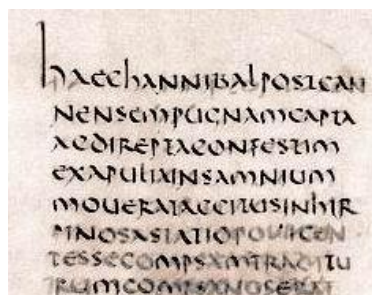 HAECHANNIBALPOSTCAN
NENSEMPUGNAMCAPTA
ACDIREPTACONFESTIM
EXAPULIAINSAMNIUM
MOUERATACCITUSINHIR
PINOSASTATIOPOLLICEN
TESSECOMPSAMTRADITU
RUMCOMPSANOSERAT